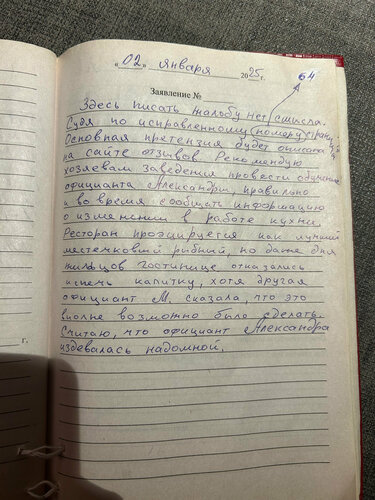 "02" января 2025 г.
64
Заявление №
Здесь писать жалобу нет смысла.
Судя по исправленному номеру страницы.
Основная претензия будет описана
на сайте отзывов Рекомендую
хозяевам заведения провести обучение
официанта Александры, правильно
и во время сообщить информацию
о изменении в работе кухни.
Ресторан проэцируется как лучший
местечковый рыбный, но даже для
жильцов гостинице отказались
испечь капитку, хотя другая
официант М. сказала, что это
вполне возможно было сделать.
Считаю, что официант Александра
издевалась надомной.
г.